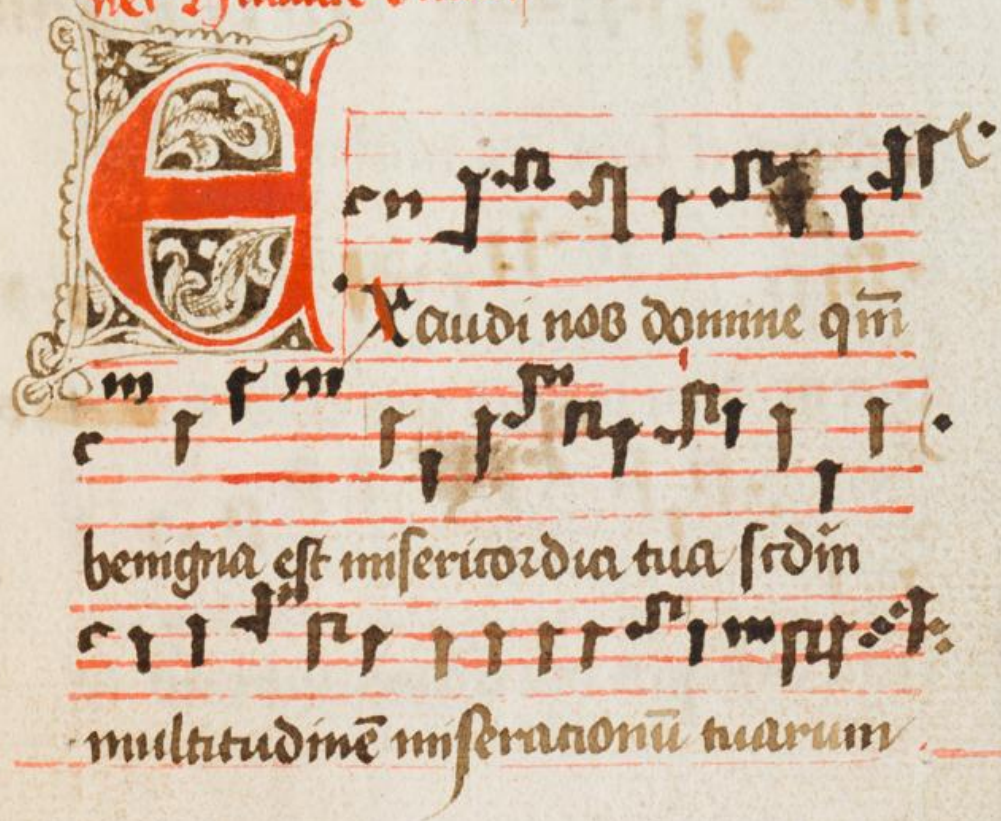 Exaudi nos domine qm̄
benigna est misericordia tua scdm̄
multitudinē miseracionū tuarum